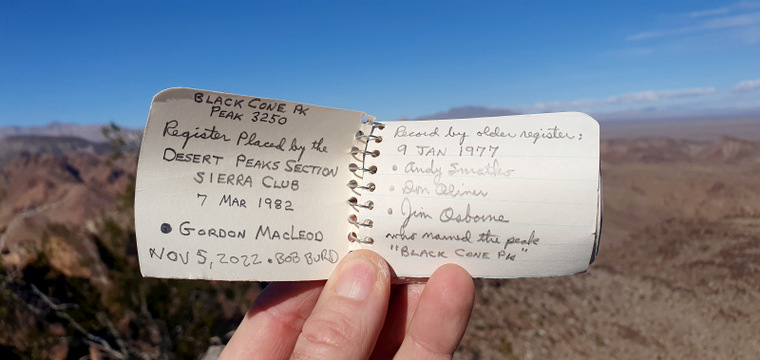 BLACK CONE PK
PEAK 3250
Register Placed by the
DESERT PEAKS SECTION
SIERRA CLUB
7 MAR 1982
• GORDON MACLEOD
NOV 5, 2022 • BOB BURD
Record by older register:
9 JAN 1977
• Andy Smatko
• Don Oliner
• Jim Osborne
who named the peak
"BLACK CONE PK"